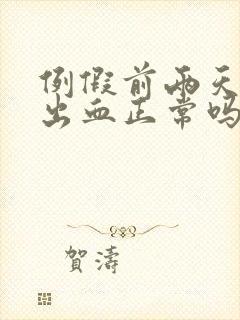 例假前两天
出血正常吗
賀濤